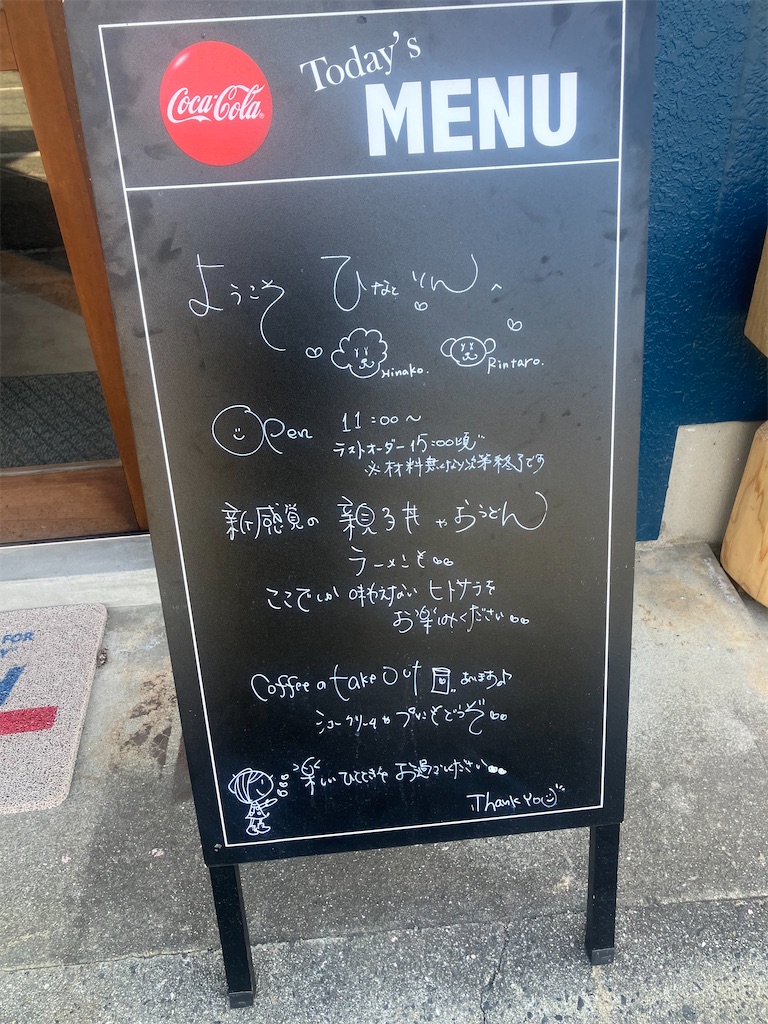 Coca-Cola
Today's
MENU
ようこそ ひなとりん へ
Hinako.
Rintaro.
Open 11:00～
ラストオーダー15:00頃
※材料無くなり次第終了です
新感覚の 親子丼やおうどん
ラーメンも
ここでしか味わえない ヒトサラを
お楽しみください
Coffee の take Out あります♪
シュークリームや プリンもどうぞ
楽しいひとときを お過ごしください
Thank You
FOR